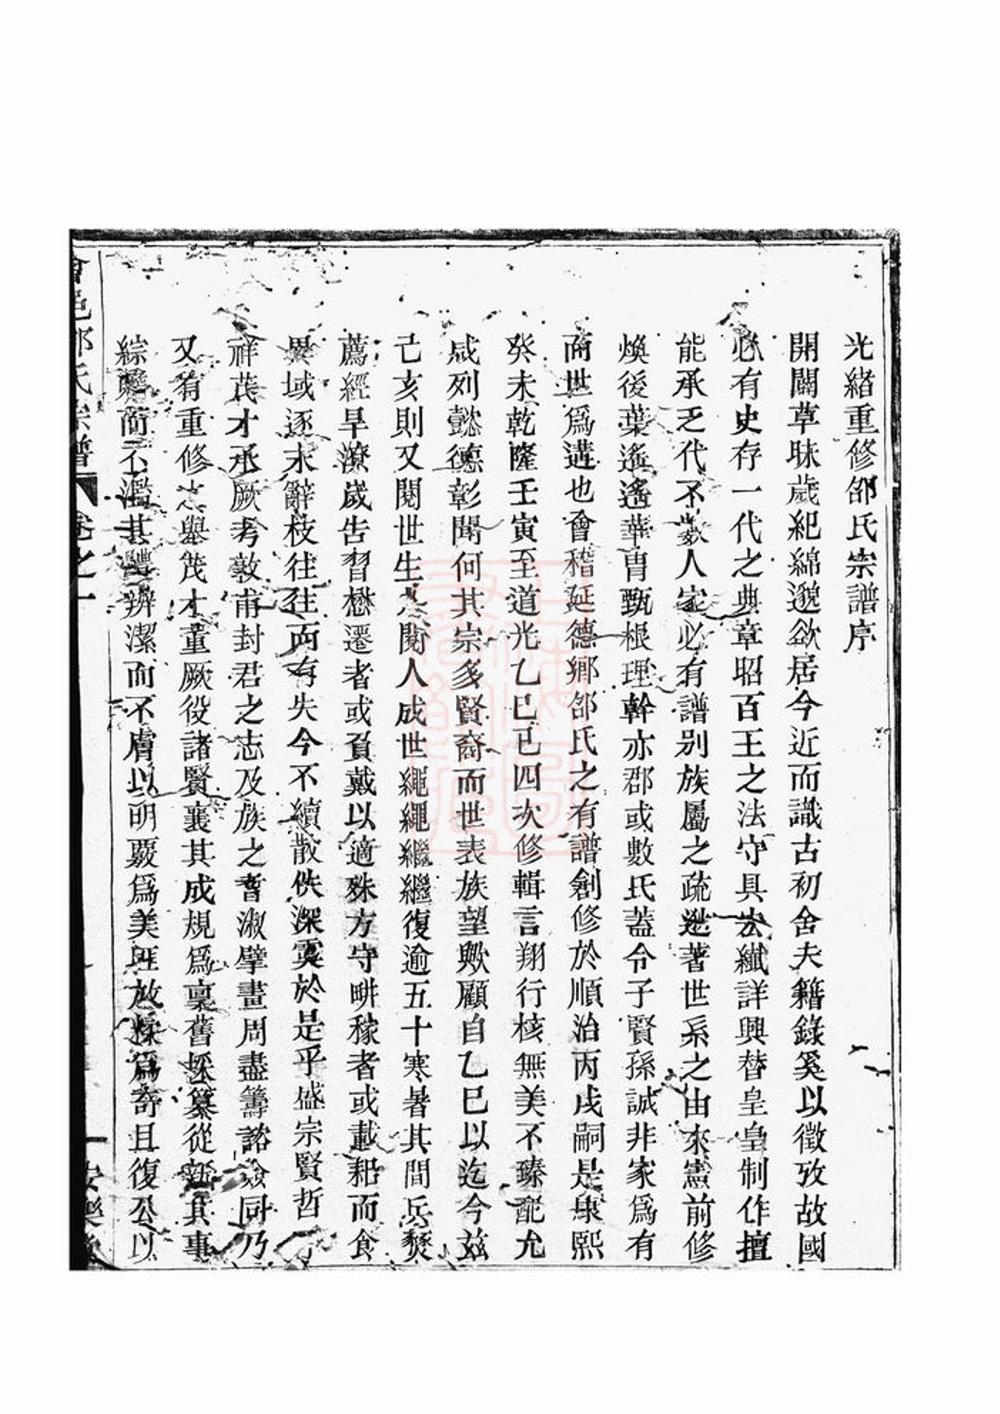 光緒重修邵氏宗譜序
開闢草昧歲紀綿邈欲居今近而識古初舍夫籍錄奚以徵攷故國
必有史存一代之典章昭百王之法守具宏纖詳興替皇皇制作擅
能承乏代不數人家必有譜別族屬之疏逖著世系之由來憲前修
煥後葉遙遙華胄甄根理幹亦郡或數氏蓋令子賢孫誠非家爲有
而世爲遘也會稽延德鄉邵氏之有譜創修於順治丙戌嗣是康熙
癸未乾隆壬寅至道光乙巳已四次修輯言翔行核無美不臻配允
咸列懿德彰聞何其宗多賢裔而世表族望歟顧自乙巳以迄今茲
己亥則又閱世生人閱人成世繩繩繼繼復逾五十寒暑其間兵燹
薦經旱潦歲告習懋遷者或負戴以適殊方守畊稼者或載耜而食
異域逐末辭枝往往而有失今不續散佚深虞於是乎盛宗賢哲
祥茂才承厥考敦甫封君之志及族之耆淑擘畫周盡籌諮僉同乃
又有重修之舉茂才董厥役諸賢襄其成規爲稟舊採纂從新其事
綜覈簡不濫甚體辨潔而不膚以明覈爲美匪放絛爲奇且復公以
會邑邵氏宗譜 卷之一 一 安樂